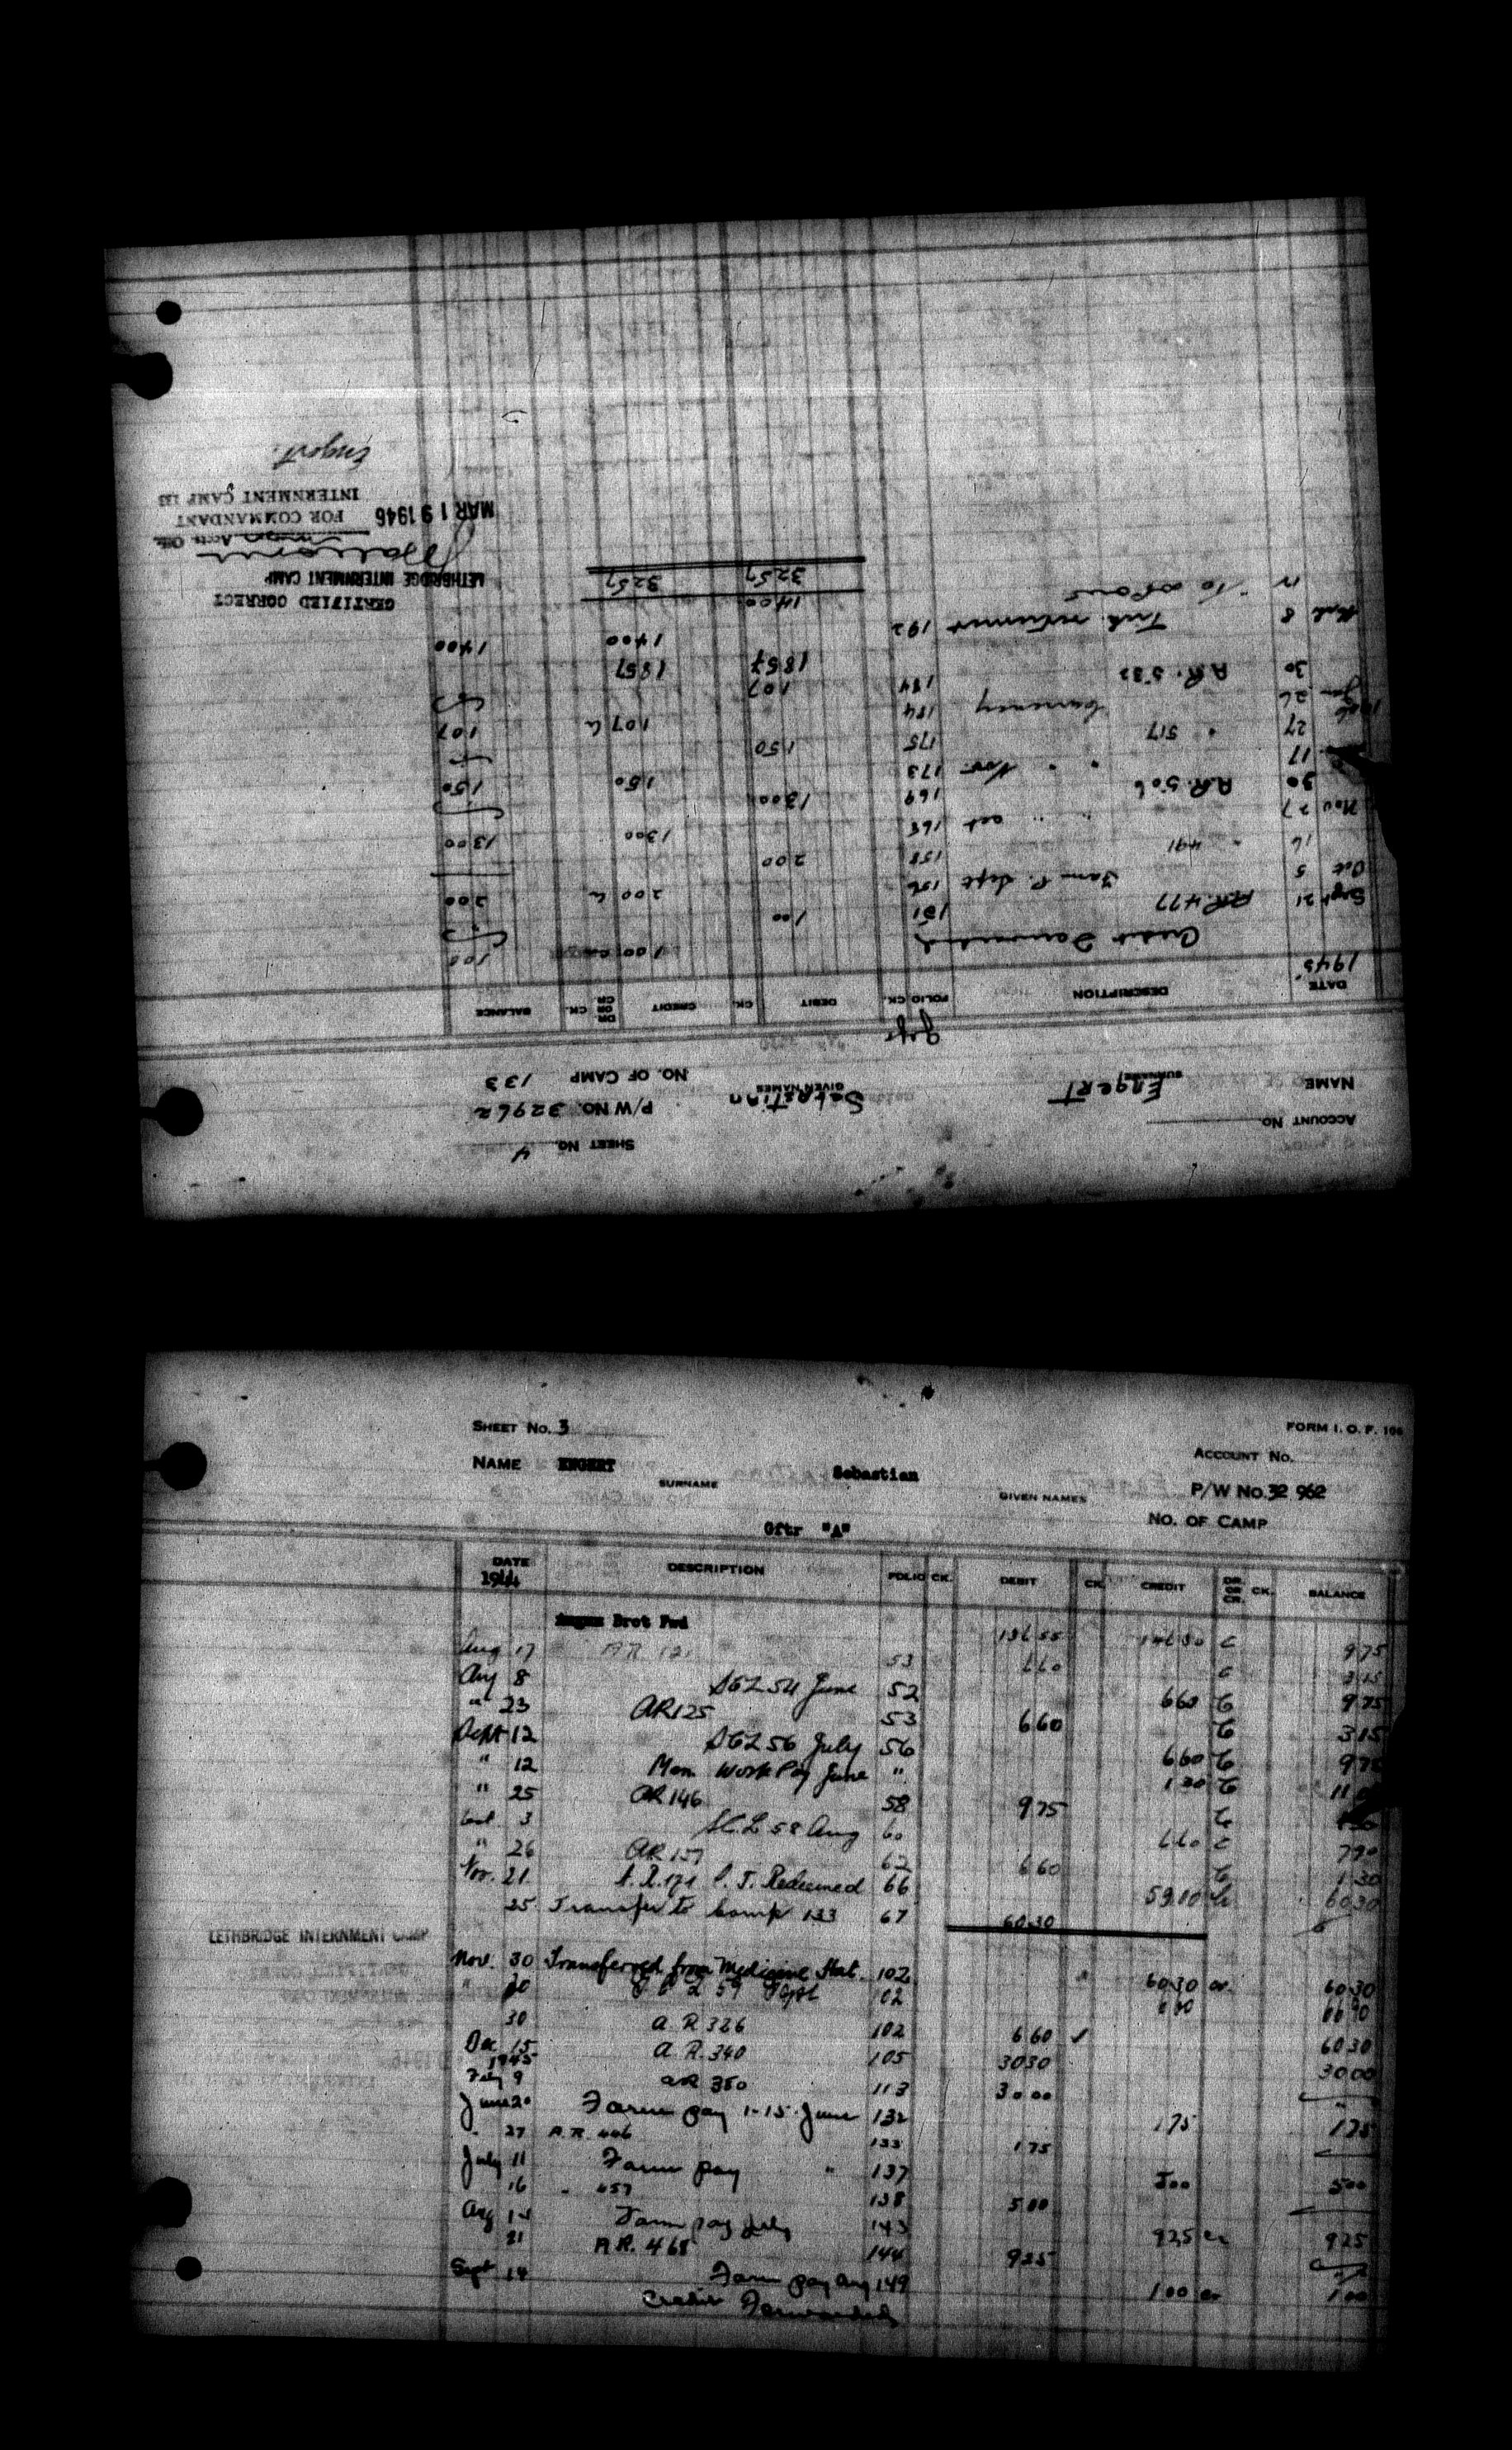 SHEET NO. 4
ACCOUNT NO.
P/W NO. 32962
NAME Engert Sebastian
SURNAME GIVEN NAMES
NO. OF CAMP 133
Gefr
DATE DESCRIPTION FOLIO CK. DEBIT CK. CREDIT DR. OR CR. CK. BALANCE
1945
Credit Forwarded 1 00 1 00
Sept 21 AR 477 151 1 00
Oct 5 Farm P. Sept 156 2 00 2 00
16 " 491 158 2 00
Nov 27 " " Oct 168 13 00 13 00
30 A.R. 506 169 13 00
17 " " Nov. 173 1 50 1 50
27 " 517 175 1 50
1946
Jan 26 Currency 184 1 07 1 07
30 A.R. 532 184 1 07
18 57 18 57
8 192 14 00 14 00
14 00
32 57 32 57
CERTIFIED CORRECT
LETHBRIDGE INTERNMENT CAMP
FOR COMMANDANT
INTERNMENT CAMP 133
MAR 19 1946
Engert
SHEET NO. 3
FORM I. O. F. 106
ACCOUNT NO.
NAME ENGERT Sebastian
SURNAME GIVEN NAMES
P/W NO. 32 962
NO. OF CAMP
Gftr "A"
DATE DESCRIPTION FOLIO CK. DEBIT CK. CREDIT DR. OR CR. CK. BALANCE
1944
Brot Fwd 136 55 146 30 C 9 75
Aug 17 AR 121 53 6 60 C 3 15
Aug 8 SCL 54 June 52 6 60 C 9 75
" 23 AR 125 53 6 60 C 3 15
Sept 12 SCL 56 July 56 6 60 C 9 75
" 12 Work Pay June " 1 30 C 11 05
" 25 AR 146 58 9 75 C 1 30
Oct. 3 SCL 58 Aug 60 6 60 C 7 90
" 26 AR 157 62 6 60 C 1 30
Nov. 21 A.R. 171 Redeemed 66 59 00 C 60 30
25 Transfer to Camp 133 67 60 30
LETHBRIDGE INTERNMENT CAMP
Nov. 30 Transferred from Medicine Hat. 102 60 30 cr 60 30
" 30 S C L 59 Sept 102 6 60 66 90
30 A.R 326 102 6 60 ✓ 60 30
Dec 15 A.R. 340 105 30 30 30 00
1945
Feb 9 AR 350 113 30 00
June 20 Farm pay 1-15 June 132 1 75 1 75
" 27 A.R. 446 133 1 75
July 11 Farm pay " 137 5 00 5 00
16 " 457 138 5 00
Aug 14 Farm pay July 143 9 25 cr 9 25
21 A.R. 468 144 9 25
Sept 14 Farm pay Aug 149 1 00 cr 1 00
Credit Forwarded